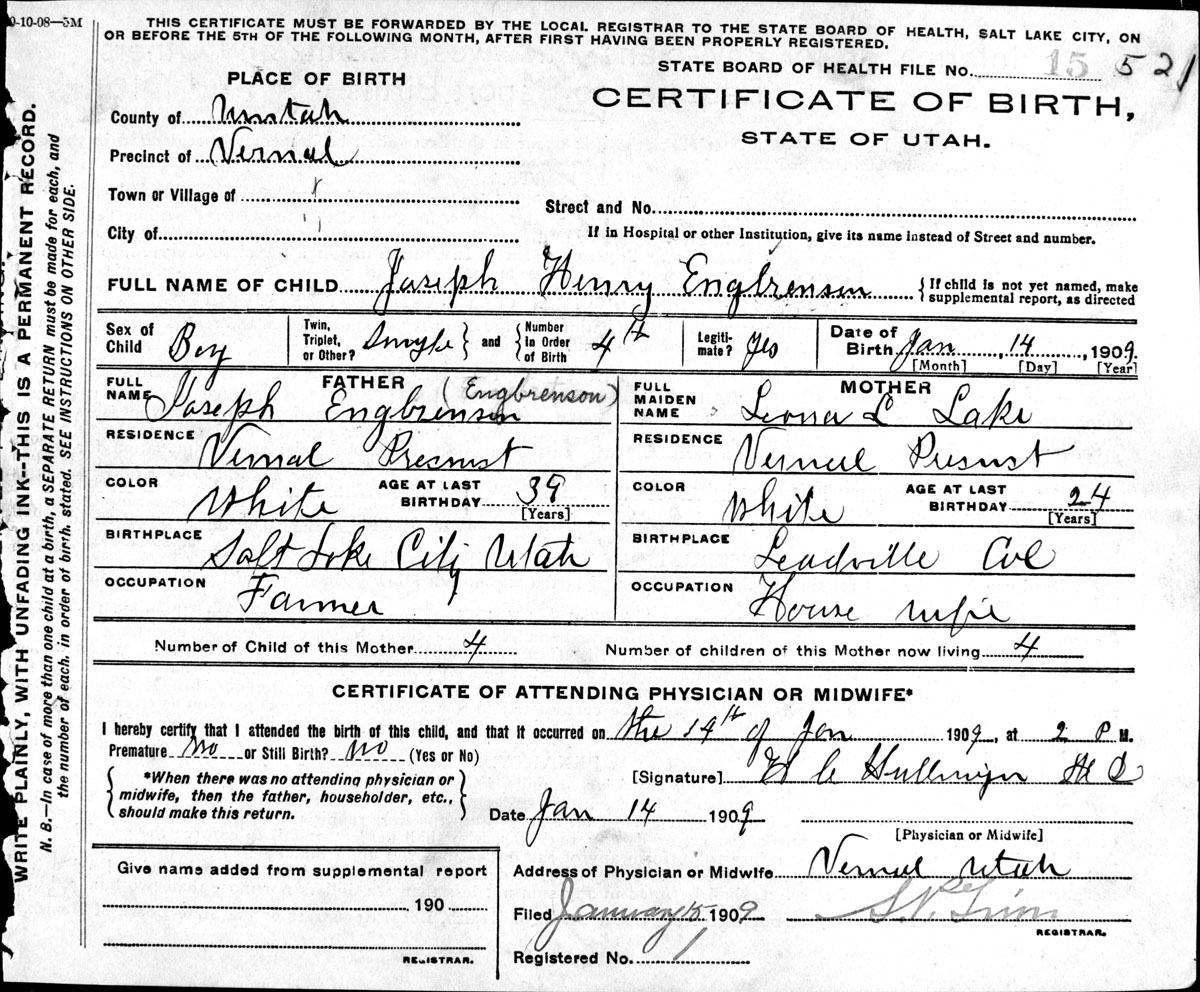 0-10-08—5M
THIS CERTIFICATE MUST BE FORWARDED BY THE LOCAL REGISTRAR TO THE STATE BOARD OF HEALTH, SALT LAKE CITY, ON
OR BEFORE THE 5TH OF THE FOLLOWING MONTH, AFTER FIRST HAVING BEEN PROPERLY REGISTERED.
STATE BOARD OF HEALTH FILE No. 15 521
CERTIFICATE OF BIRTH,
STATE OF UTAH.
PLACE OF BIRTH
County of Uintah
Precinct of Vernal
Town or Village of
City of
Street and No.
If in Hospital or other Institution, give its name instead of Street and number.
FULL NAME OF CHILD Joseph Henry Engbrensen { If child is not yet named, make
supplemental report, as directed
Sex of Child Boy
Twin, Triplet, or Other? Single } and { Number in Order of Birth 4th
Legitimate? Yes
Date of Birth Jan, 14, 1909.
[Month] [Day] [Year]
FATHER
FULL NAME Joseph Engbrensen (Engbrenson)
RESIDENCE Vernal
COLOR White AGE AT LAST BIRTHDAY 39
[Years]
BIRTHPLACE Salt Lake City Utah
OCCUPATION Farmer
MOTHER
FULL MAIDEN NAME Leona L Lake
RESIDENCE Vernal
COLOR White AGE AT LAST BIRTHDAY 24
[Years]
BIRTHPLACE Leadville Col
OCCUPATION House wife
Number of Child of this Mother 4 Number of children of this Mother now living 4
CERTIFICATE OF ATTENDING PHYSICIAN OR MIDWIFE*
I hereby certify that I attended the birth of this child, and that it occurred on the 14th of Jan 1909, at 2 P M.
Premature No or Still Birth? No (Yes or No)
{ *When there was no attending physician or
midwife, then the father, householder, etc.,
should make this return. }
[Signature] H C
Date Jan 14 1909
[Physician or Midwife]
Address of Physician or Midwife Vernal Utah
Filed January 15 1909
REGISTRAR.
Registered No. 1
Give name added from supplemental report
190
REGISTRAR.
WRITE PLAINLY, WITH UNFADING INK--THIS IS A PERMANENT RECORD.
N. B.—In case of more than one child at a birth, a SEPARATE RETURN must be made for each, and
the number of each, in order of birth, stated. SEE INSTRUCTIONS ON OTHER SIDE.